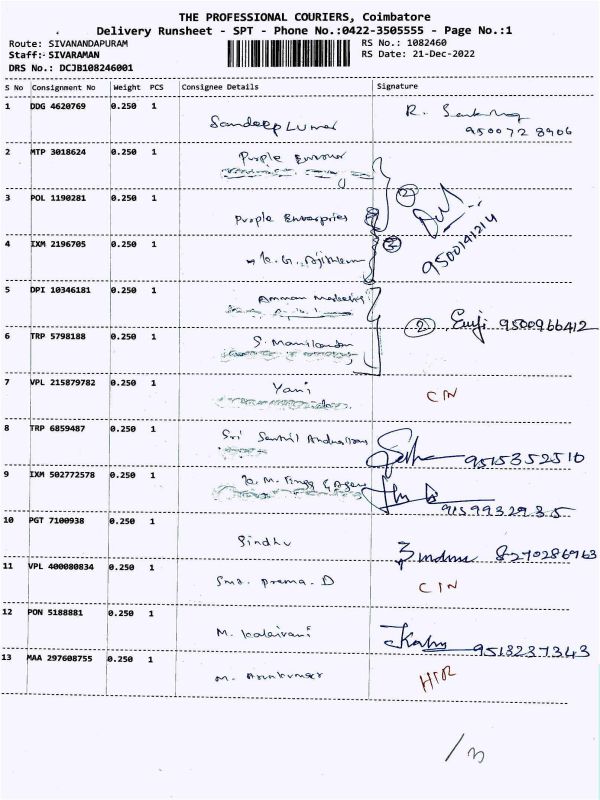 THE PROFESSIONAL COURIERS, Coimbatore
Delivery Runsheet - SPT - Phone No.:0422-3505555 - Page No.:1
Route: SIVANANDAPURAM RS No.: 1082460
Staff: SIVARAMAN RS Date: 21-Dec-2022
DRS No.: DCJB108246001
S No Consignment No Weight PCS Consignee Details Signature
1 DDG 4620769 0.250 1 Sandeep Kumar R.
9500728906
2 MTP 3018624 0.250 1 Purple
3 POL 1190281 0.250 1 Purple Enterprises 2
9500141214
4 IXM 2196705 0.250 1 K. G. 2
5 DPI 10346181 0.250 1 Amman
2 9500966412
6 TRP 5798188 0.250 1 S. Manikandan
7 VPL 215879782 0.250 1 Vani CIN
8 TRP 6859487 0.250 1 Sri Senthil
9515352510
9 IXM 502772578 0.250 1 K. M.
9159932935
10 PGT 7100938 0.250 1 Sindhu 8270286963
11 VPL 400080834 0.250 1 Sms. prema. D CIN
12 PON 5188881 0.250 1 M. Kalaivani 9513237343
13 MAA 297608755 0.250 1 M. Arunkumar